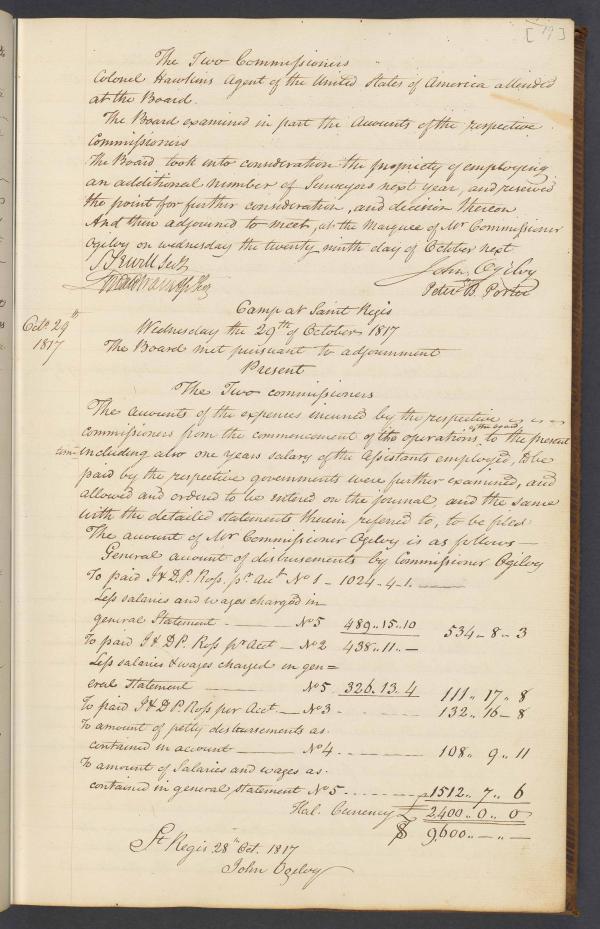 [79]
The Two Commissioners
Colonel Hawkins Agent of the United States of America attended
at the Board.
The Board examined in part the Accounts of the respective
Commissioners
The Board took into consideration the propriety of employing
an additional number of Surveyors next year, and reserved
the point for further consideration, and decision thereon
And then adjourned to meet, at the Marquee of Mr Commissioner
Ogilvy on Wednesday the twenty ninth day of October next
S. Sewell Secy
John Ogilvy
Peter B. Porter
Camp at Saint Regis
Octr. 29th
1817
Wednesday the 29th of October 1817
The Board met pursuant to adjournment
Present
The Two commissioners
The accounts of the expenses incurred by the respective
commissioners from the commencement of the operations of the board, to the present
time including also one years salary of the Assistants employed, to be
paid by the respective governments were further examined, and
allowed and ordered to be entered on the journal and the same
with the detailed statements therein referred to, to be filed
The account of Mr Commissioner Ogilvy is as follows —
General account of disbursements by Commissioner Ogilvy
To paid J & D. P. Ross. pr Acct No 1 - 1024-4-1.
Less salaries and wages charged in
general Statement - No 5 489..15..10 534-8-3
To paid J & D P. Ross pr Acct - No 2 438..11..-
Less salaries & wages charged in gen=
eral Statement No 5. 326.13.4 111..17..8
To paid J & D P. Ross per Acct. - No 3 - 132..16-8
To amount of petty disbursements as
contained in account No 4. 108..9..11
To amount of Salaries and wages as
contained in general statement No 5 1512..7..6
Hal. Currency £ 2400..0..0
$ 9,600..-..-
St Regis 28th Oct. 1817
John Ogilvy